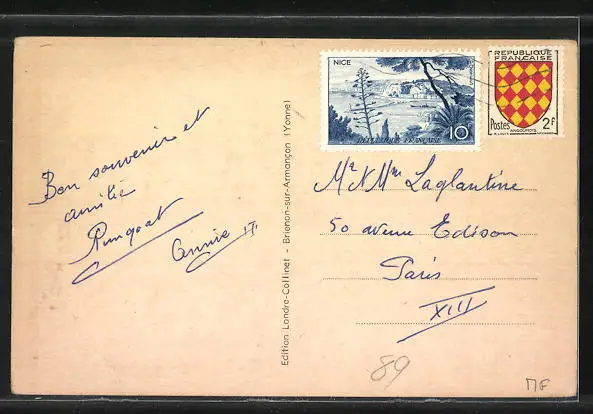 NICE
10
RÉPUBLIQUE FRANÇAISE
RÉPUBLIQUE
FRANÇAISE
Postes 2F
ANGOUMOIS
Bon souvenir et
amitié
Annie
Edition Landre-Collinet - Brienon-sur-Armançon (Yonne)
Mr & Mme Laglantine
50 avenue Edison
Paris
XIII
89
MF